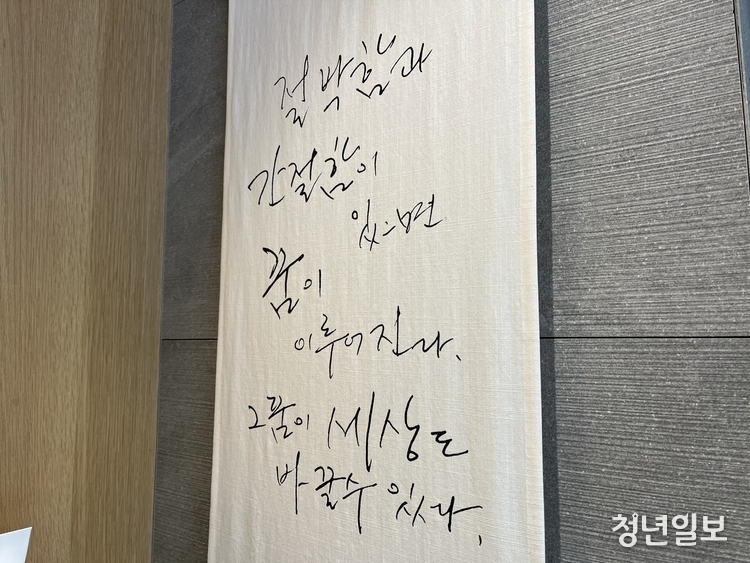 절박함과
간절함이
있으면
꿈이
이루어진다.
그 꿈이 세상도
바꿀수 있다.
청년일보